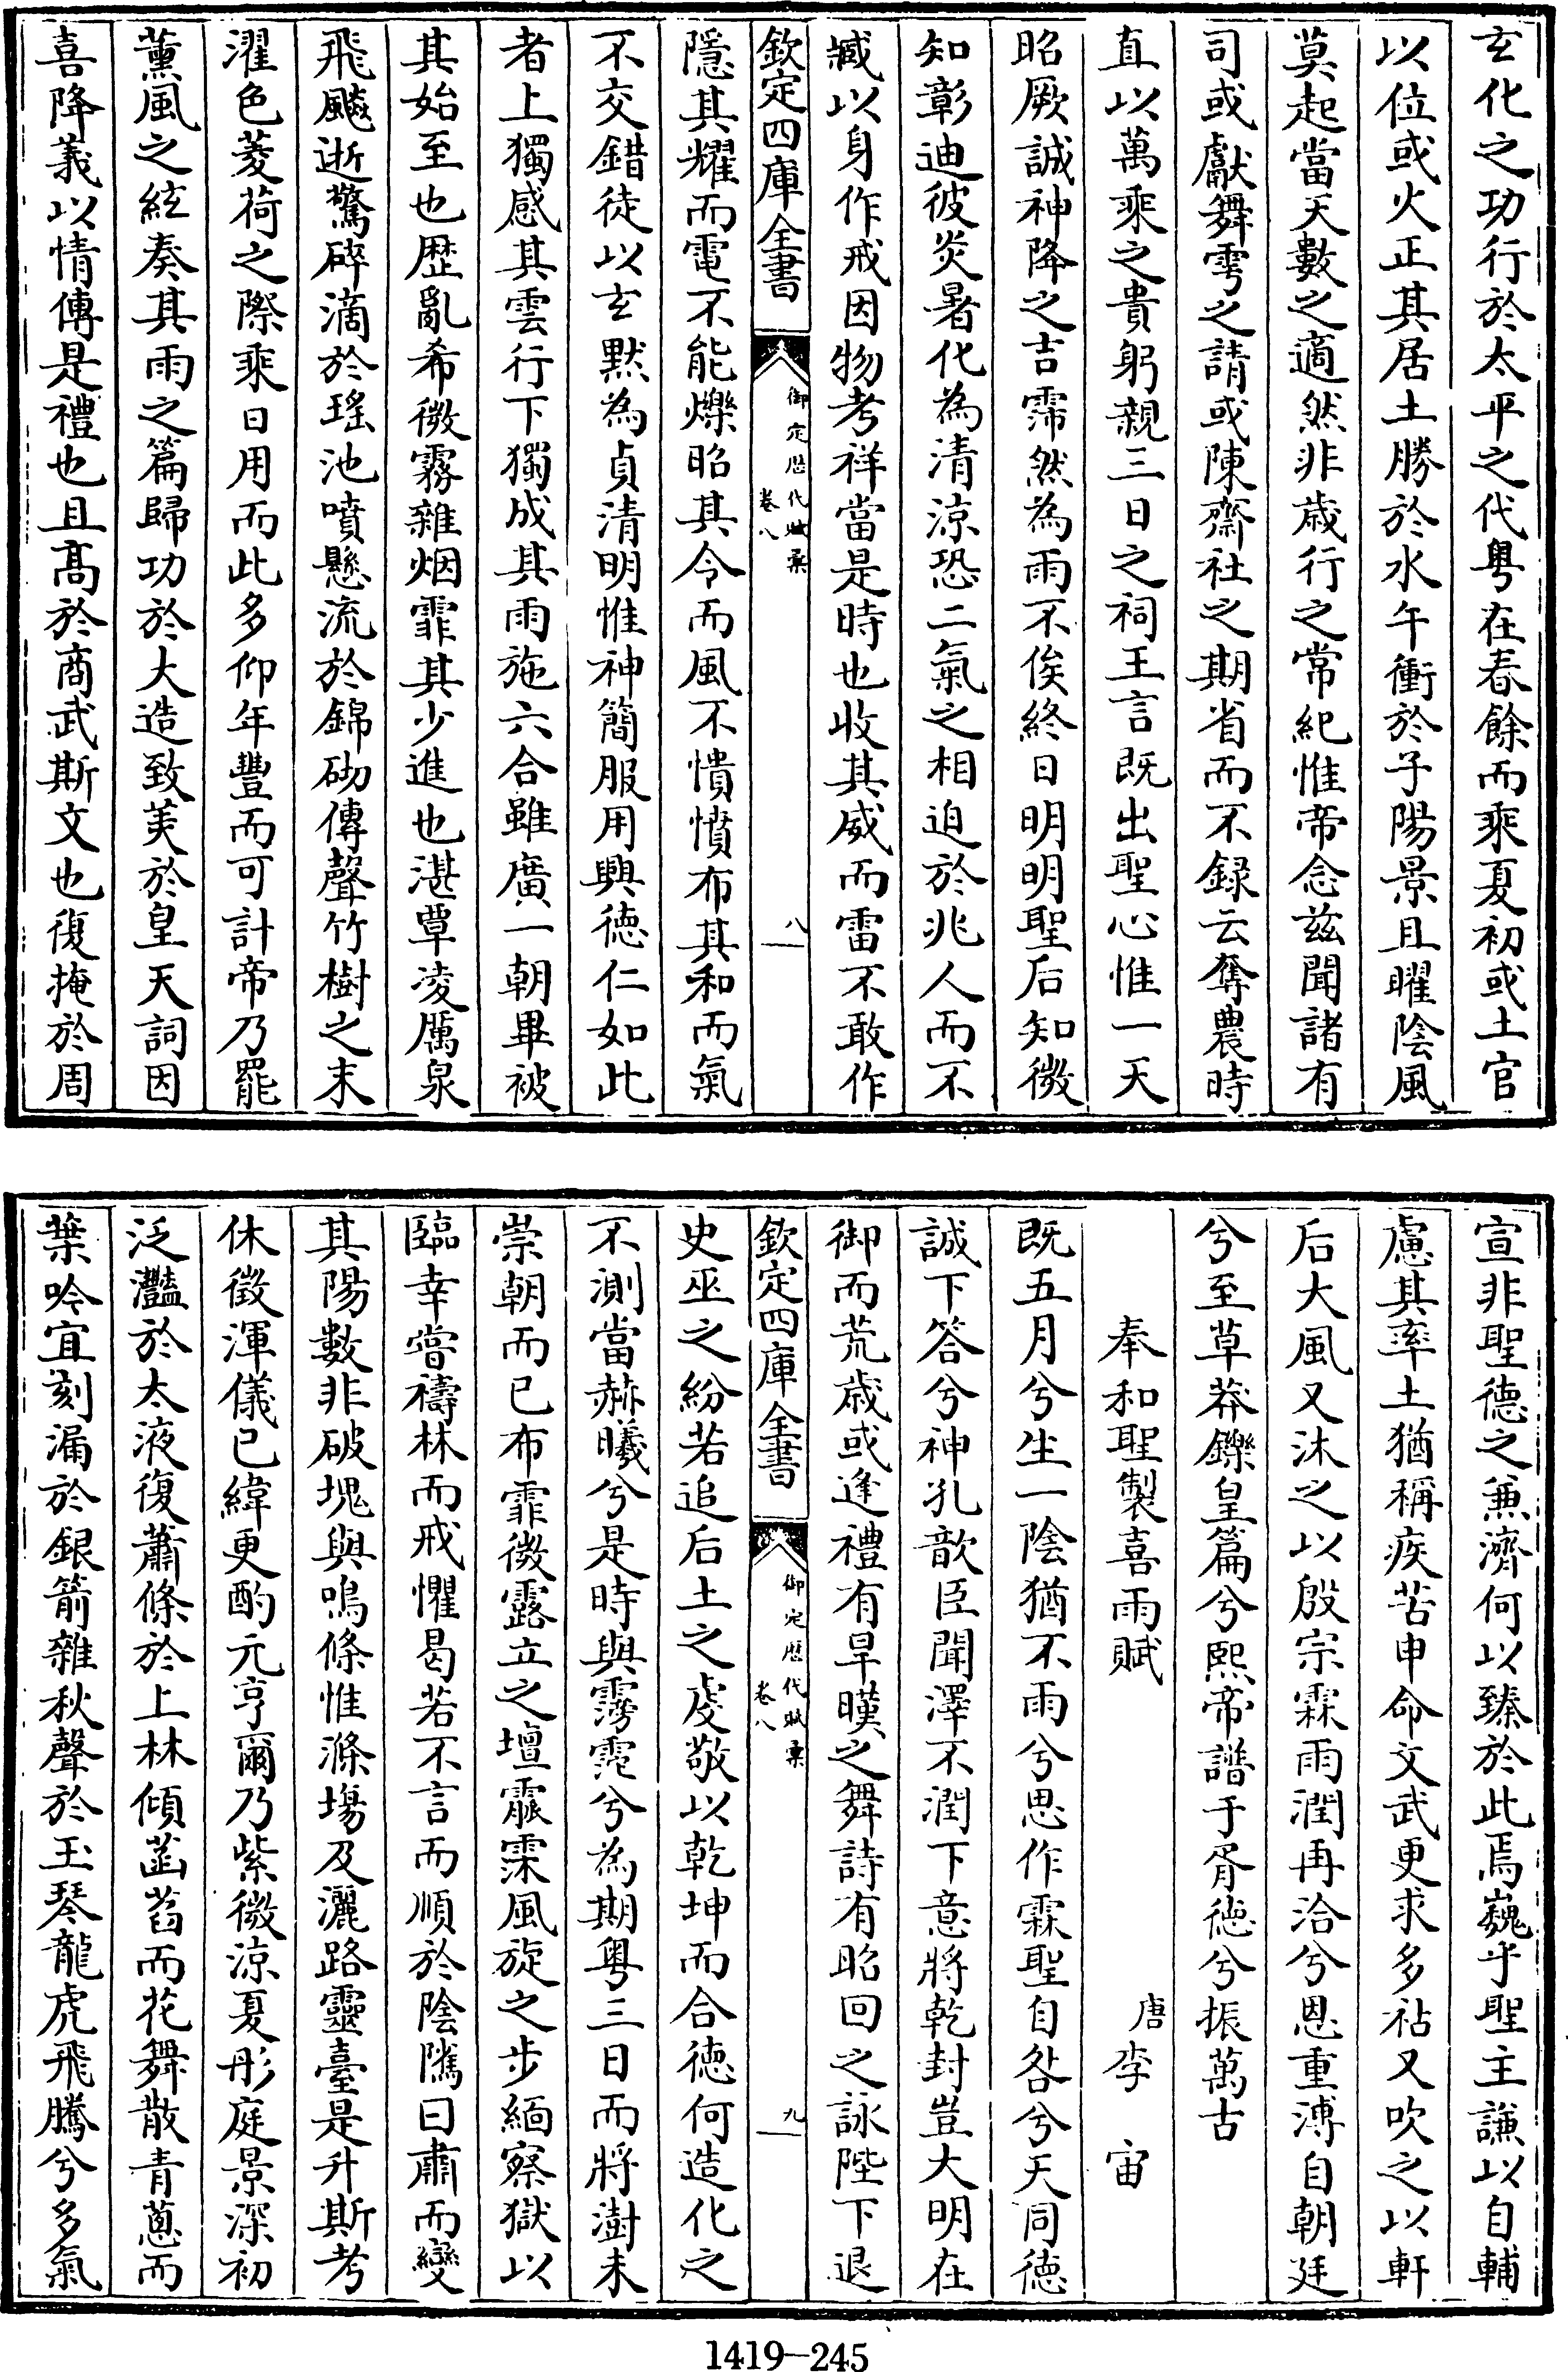 玄化之功行於太平之代粤在春餘而乘夏初或土官
以位或火正其居土勝於水午衝於子陽景且曜陰風
莫起當天數之適然非歳行之常紀惟帝念兹聞諸有
司或獻舞雩之請或陳齋社之期省而不録云奪農時
直以萬乘之貴躬親三日之祠王言既出聖心惟一天
昭厥誠神降之吉霈然為雨不俟終日明明聖后知微
知彰迪彼炎暑化為清涼恐二氣之相迫於兆人而不
臧以身作戒因物考祥當是時也收其威而雷不敢作
欽定四庫全書
御定歴代賦彙
卷八
八
隱其耀而電不能爍昭其令而風不憒憤布其和而氣
不交錯徒以玄黙為貞清明惟神簡服用興徳仁如此
者上獨感其雲行下獨成其雨施六合雖廣一朝畢被
其始至也歴亂希微霧雜烟霏其少進也湛覃凌厲泉
飛飈逝驚碎滴於瑤池噴懸流於錦砌傳聲竹樹之末
濯色菱荷之際乘日用而此多仰年豐而可計帝乃罷
薰風之絃奏其雨之篇歸功於大造致美於皇天詞因
喜降義以情傳是禮也且髙於商武斯文也復掩於周
宣非聖德之兼濟何以臻於此焉巍乎聖主謙以自輔
慮其率土猶稱疾苦申命文武更求多祜又吹之以軒
后大風又沐之以殷宗霖雨潤再洽兮恩重溥自朝廷
兮至草莽鑠皇篇兮熙帝譜于胥徳兮振萬古
奉和聖製喜雨賦
唐李宙
既五月兮生一陰猶不雨兮思作霖聖自咎兮天同德
誠下答兮神孔歆臣聞澤不潤下意將乾封豈大明在
御而荒歳或逢禮有旱暵之舞詩有昭回之詠陛下退
欽定四庫全書
御定歴代賦彙
卷八
九
史巫之紛若追后土之虔敬以乾坤而合徳何造化之
不測當赫曦兮是時與霶霓兮為期粤三日而將澍未
崇朝而已布霏微露立之壇霢霂風旋之步緬察獄以
臨幸嘗禱林而戒懼曷若不言而順於陰隲曰肅而變
其陽數非破塊與鳴條惟滌場及灑路靈臺是升斯考
休徵渾儀已緯更酌元亨爾乃紫微涼夏彤庭景深初
泛灩於太液復蕭條於上林傾菡萏而花舞散青蔥而
葉吟宜刻漏於銀箭雜秋聲於玉琴龍虎飛騰兮多氣
1419—245